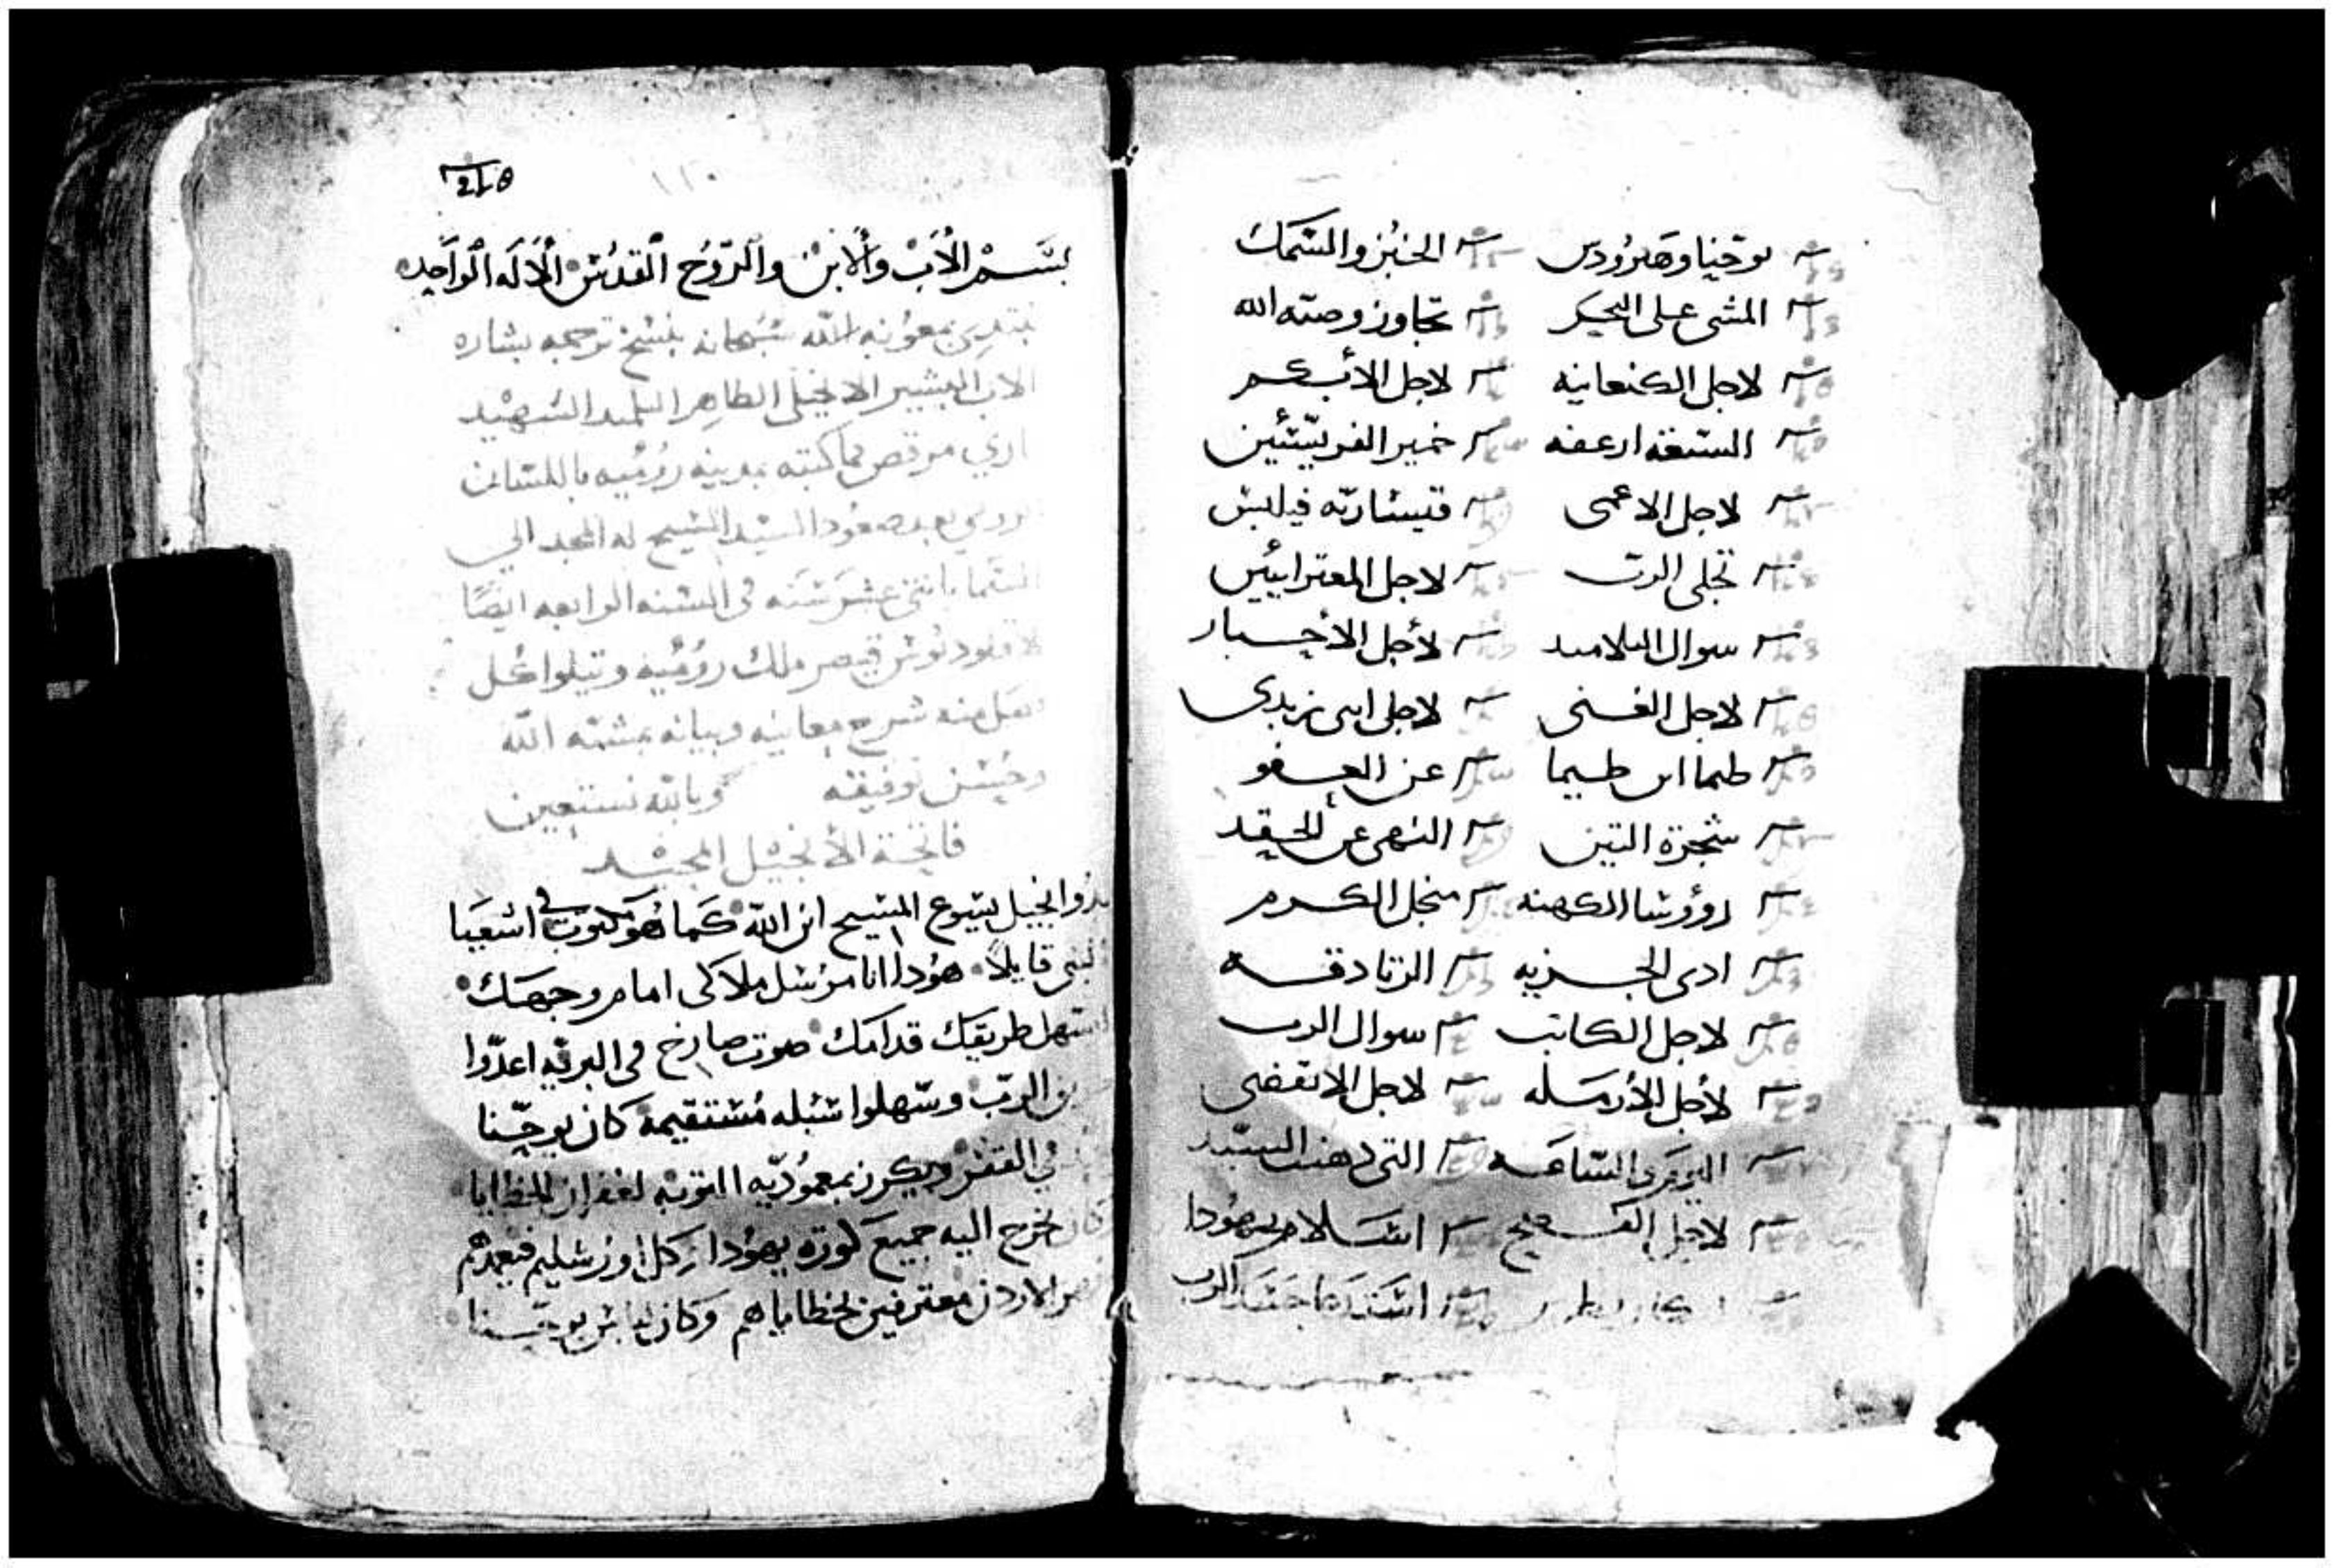 يوحنا وهيرودس الخبز والسمك
المشى على البحر تجاوز وصيه الله
لاجل الكنعانيه لاجل الأبكم
السبعة ارغفه خمير الفريسيين
لاجل الاعمى قيساريه فيلبس
تجلى الرب لاجل المعترايين
سوال التلاميد لأجل الأخيار
لاجل الغنى لاجل ابنى زبدى
طيما ابن طيما عن العفو
شجرة التين النهى عن الحقد
روؤسا الكهنه منجل الكرم
ادى الجزيه الزنادقه
لاجل الكاتب سوال الرب
لأجل الأرمله لاجل الانقضى
اليوم والساعه التى دهنت السيد
لاجل الفصح اسلام يهودا
اسيداعا جسد الرب
١١٠
بسم الأب والابن والروح القدس ألاله الواحد
نبتدى بمعونه الله سبحانه بنسخ ترجمه بشاره
الاب البشير الانجيلى الطاهر التلميد الشهيد
ماري مرقص مما كتبه بمدينه روميه باللسان
الرومي بعد صعود السيد المسيح له المجد الي
السما باثنى عشر سنه فى السنه الرابعه ايضا
لاقلوديوس قيصر ملك روميه ويتلوا كل
فصل منه شرح معانيه وبيانه بمشيه الله
وحسن توفيقه وبالله نستعين
فاتحة الأنجيل المجيد
بدوا انجيل يسوع المسيح ابن الله كما هو مكتوب في اشعيا
النبى قايلا هودا انا مرسل ملاكى امام وجهك
ليسهل طريقك قدامك صوت صارخ فى البريه اعدوا
الرب وسهلوا سبله مستقيمة كان يوحنا
في القفر ويكرز بمعموديه التوبه لغفران الخطايا
كان يخرج اليه جميع كورة يهودا وكل اورشليم فيعمدهم
الاردن معترفين بخطاياهم وكان لباس يوحنا